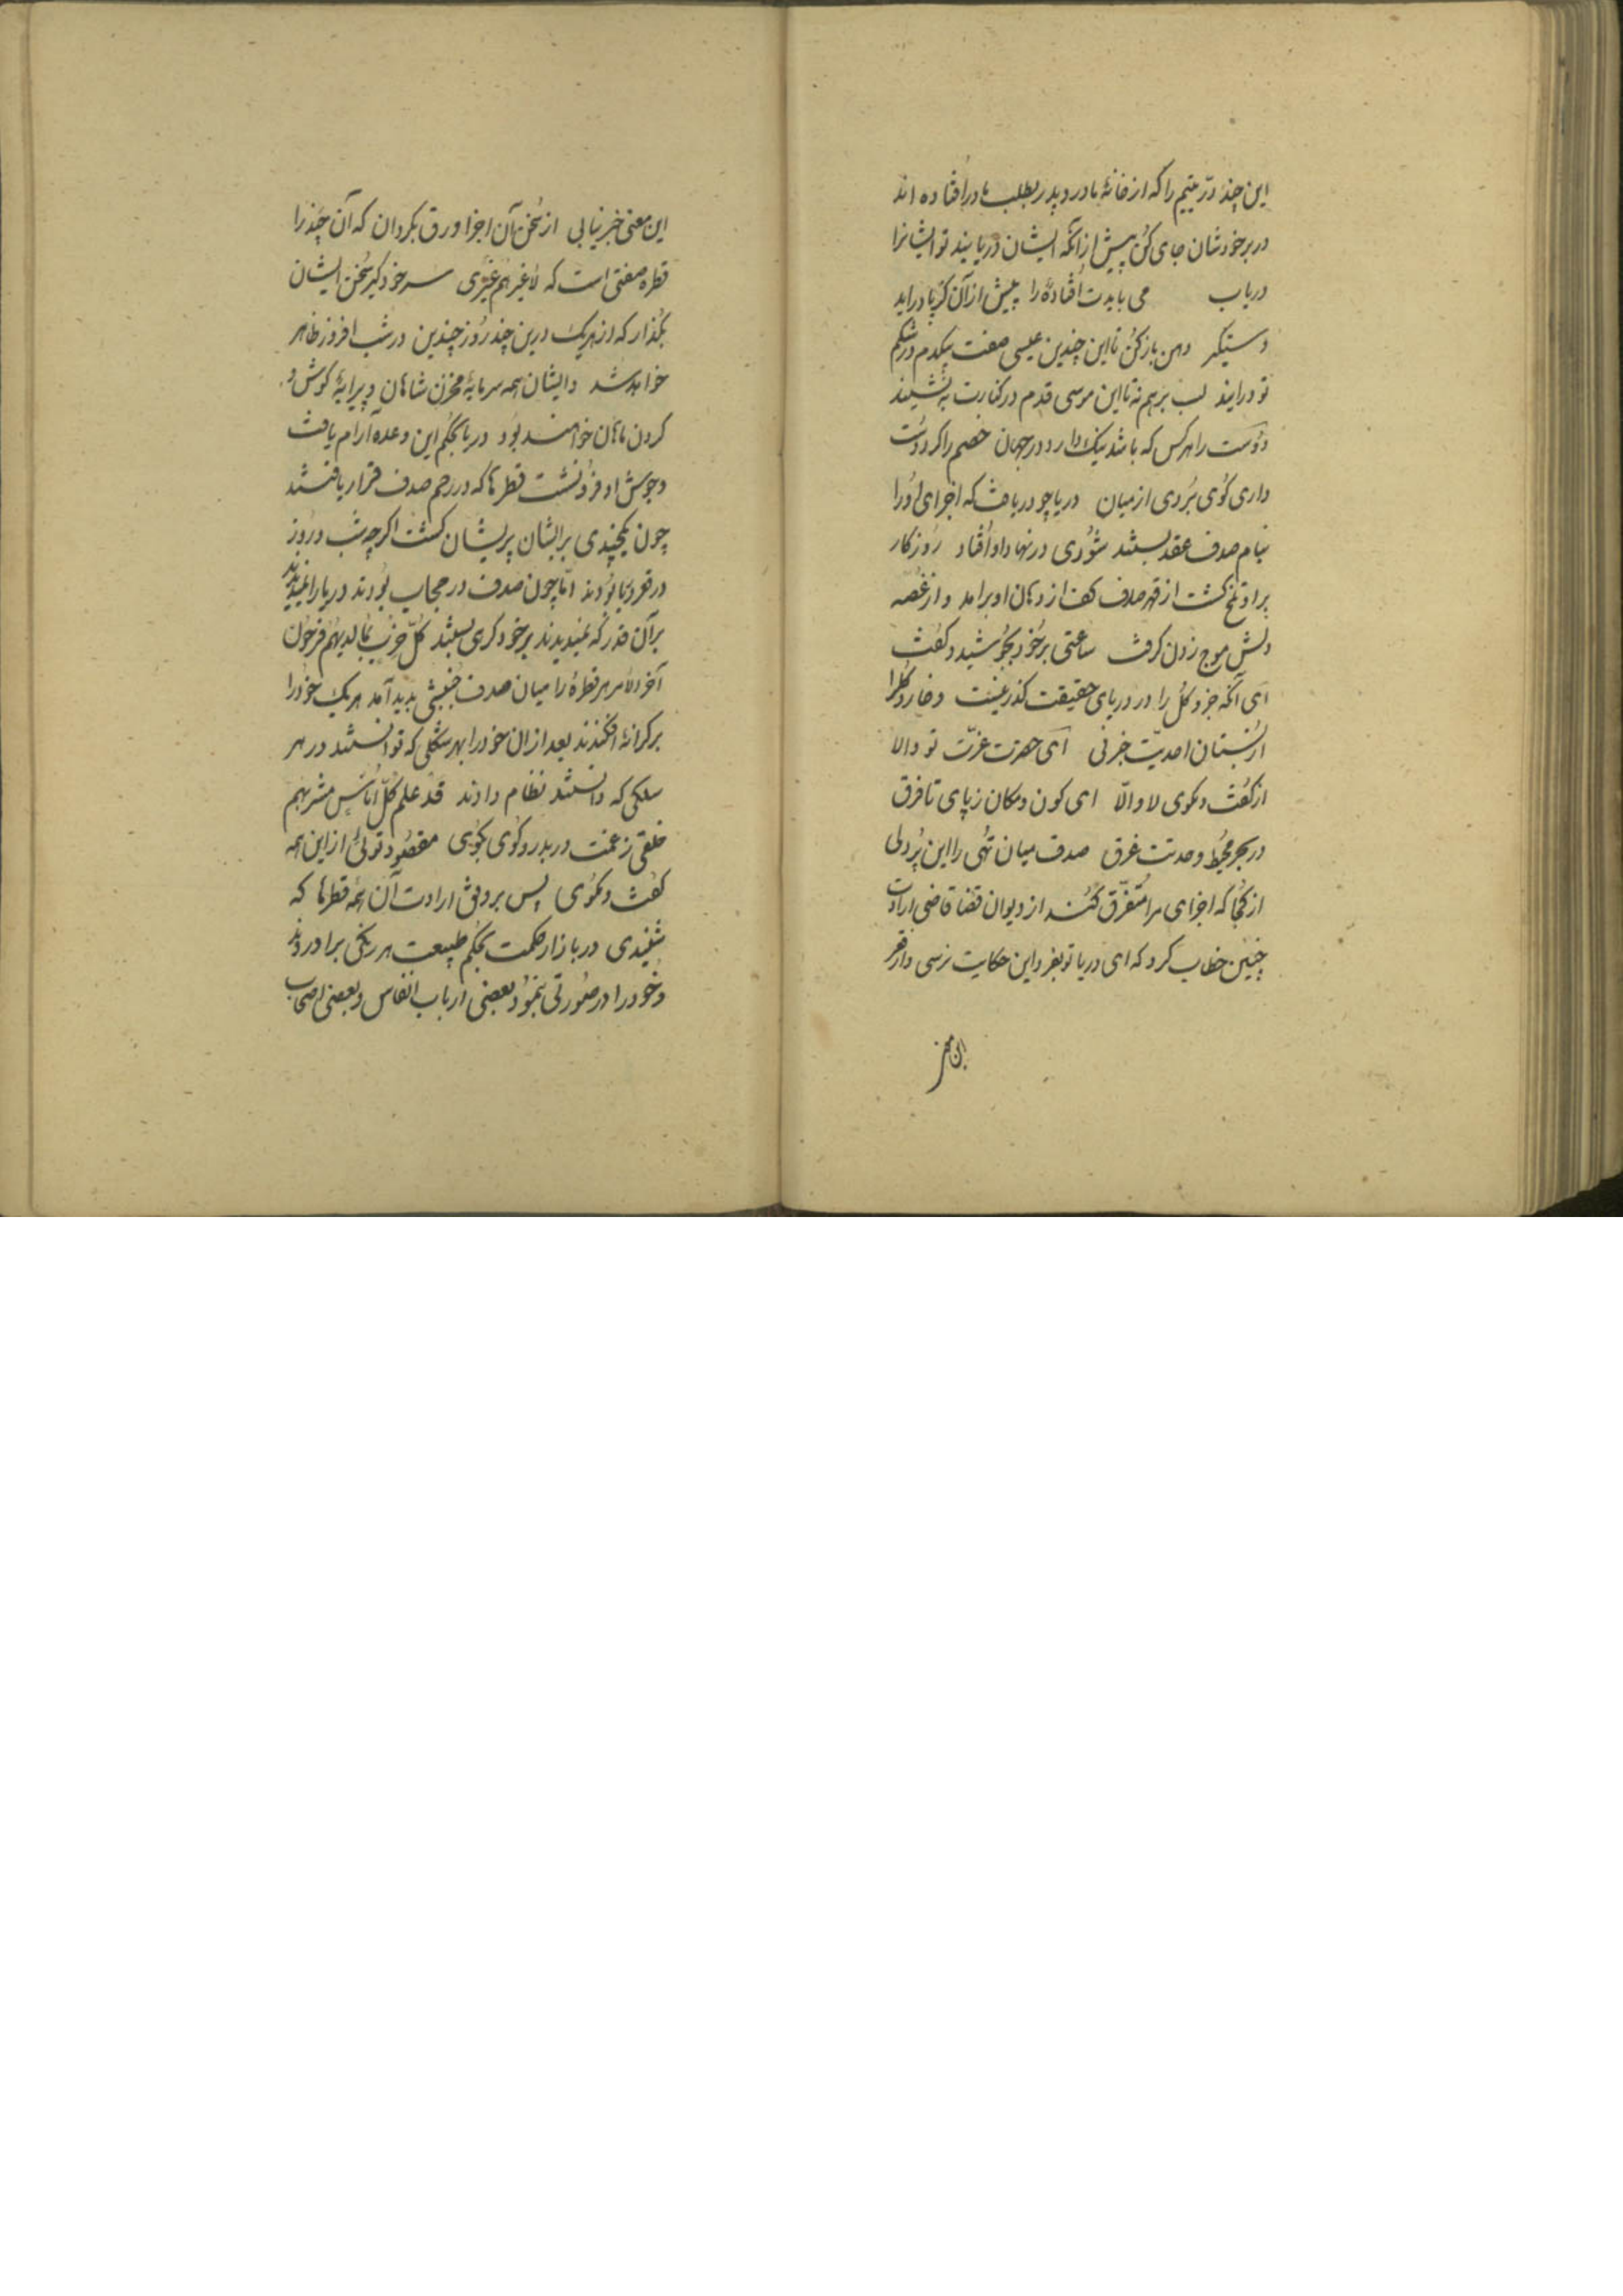 این چند درّ یتیم را که از خانهٔ مادر و پدر بطلب ما درافتاده اند
در بر خودشان جای کن پیش از آنکه ایشان دریابیند تو ایشانرا
دریاب می بایدت افتادهٔ را پیش از آن کز پا دراید
دستگیر دهن باز کن تا این چندین عیسی صفت یکدم در شکم
تو درایند لب بر هم نه تا این موسی قدم در کنارت بنشیند
دوست را هر کس که باشد نیک دارد در جهان خصم را کر دوست
داری کوی بردی از میان دریا چو دریافت که اجرای او را
بنام صدف عقد بستند شوری در نهاد او افتاد روزکار
بر او تلخ کشت از قهر صدف کف از دهان او برامد و از غصه
دلش موج زدن کرفت ساعتی بر خود بجوشید و کفت
ای آنکه جزو کل را در دریای حقیقت کذر نیست و خار و کل را
از بستان احدیّت خبر نی ای حضرت عزّت تو والا
از کفت و کوی لا و الّا ای کون و مکان ز پای تا فرق
در بحر محیط وحدتت غرق صدف میان تهی را این پر دلی
از کجا که اجزای مرا متفرّق کند از دیوان قضا قاضی ارادت
چنین خطاب کرد که ای دریا تو بغور این حکایت نرسی و از قعر
این معنی
این معنی خبر نیابی از سخن آن اجزا ورق بکردان که آن چند را
قطره صفتی است که لا غیرهم غیری سر خود کیر سخن ایشان
بکذار که از هر یک درین چند روز چندین در شب افروز ظاهر
خواهد شد و ایشان همه سرمایهٔ مخزن شاهان و پیرایهٔ کوش و
کردن ماهان خواهند بود دریا بحکم این وعده آرام یافت
و جوش او فرو نشست قطرها که در رحم صدف قرار یافتند
چون یکچندی بر ایشان پریشان کشت اکر چه شب و روز
در قعر دریا بودند امّا چون صدف در حجاب بودند دریا را نمیدیدند
بر آن قدر که نمیدیدند بر خود کری بستند کلّ حزب بما لدیهم فرحون
آخر الامر هر قطره را میان صدف جنبشی بدید آمد هر یک خود را
بر کرانهٔ افکندند بعد از ان خود را بهر شکلی که توانستند در هر
سلکی که دانستند نظام دادند قد علم کلّ اناس مشربهم
خلقی ز غمت در بدر و کوی بکوی مقصود توئی از این همه
کفت و کوی پس بر وفق ارادت آن همه قطرها که
شنیدی در بازار حکمت بحکم طبیعت هر رنکی برادردند
و خود را در صورتی بنمود بعضی ارباب انفاس و بعضی اصحاب